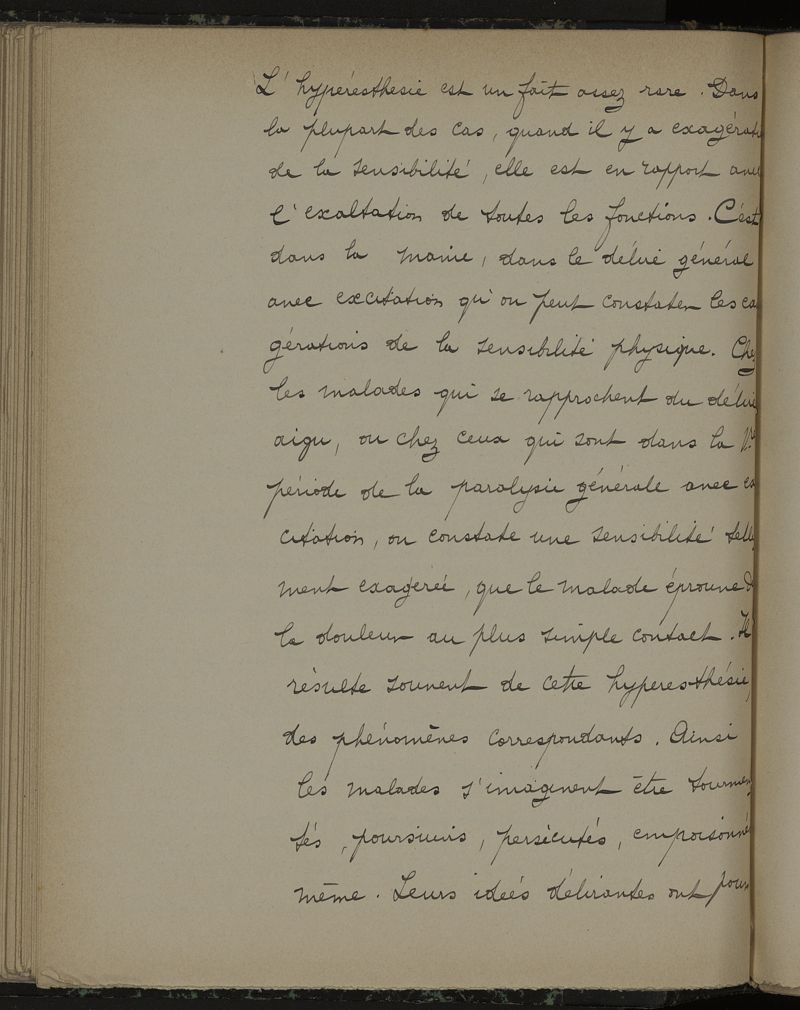 L'hyperesthesie est un fait assez rare. Dans
la plupart des cas, quand il y a exagérati
de la sensibilité, elle est en rapport avec
l'exaltation de toutes les fonctions. C'est
dans la manie, dans le délire général
avec excitation qu'on peut constater les exa
gérations de la sensibilité physique. Chez
les malades qui se rapprochent du délire
aigu, ou chez ceux qui sont dans la 1re
période de la paralysie générale avec ex
citation, on constate une sensibilité telle
ment exagérée, que le malade éprouve de
la douleur au plus simple contact. Il
résulte souvent de cette hyperesthésie,
des phénomènes correspondants. Ainsi
les malades s'imaginent être tourmen
tés, poursuivis, persécutés, empoisonnés
même. Leurs idées délirantes ont pour